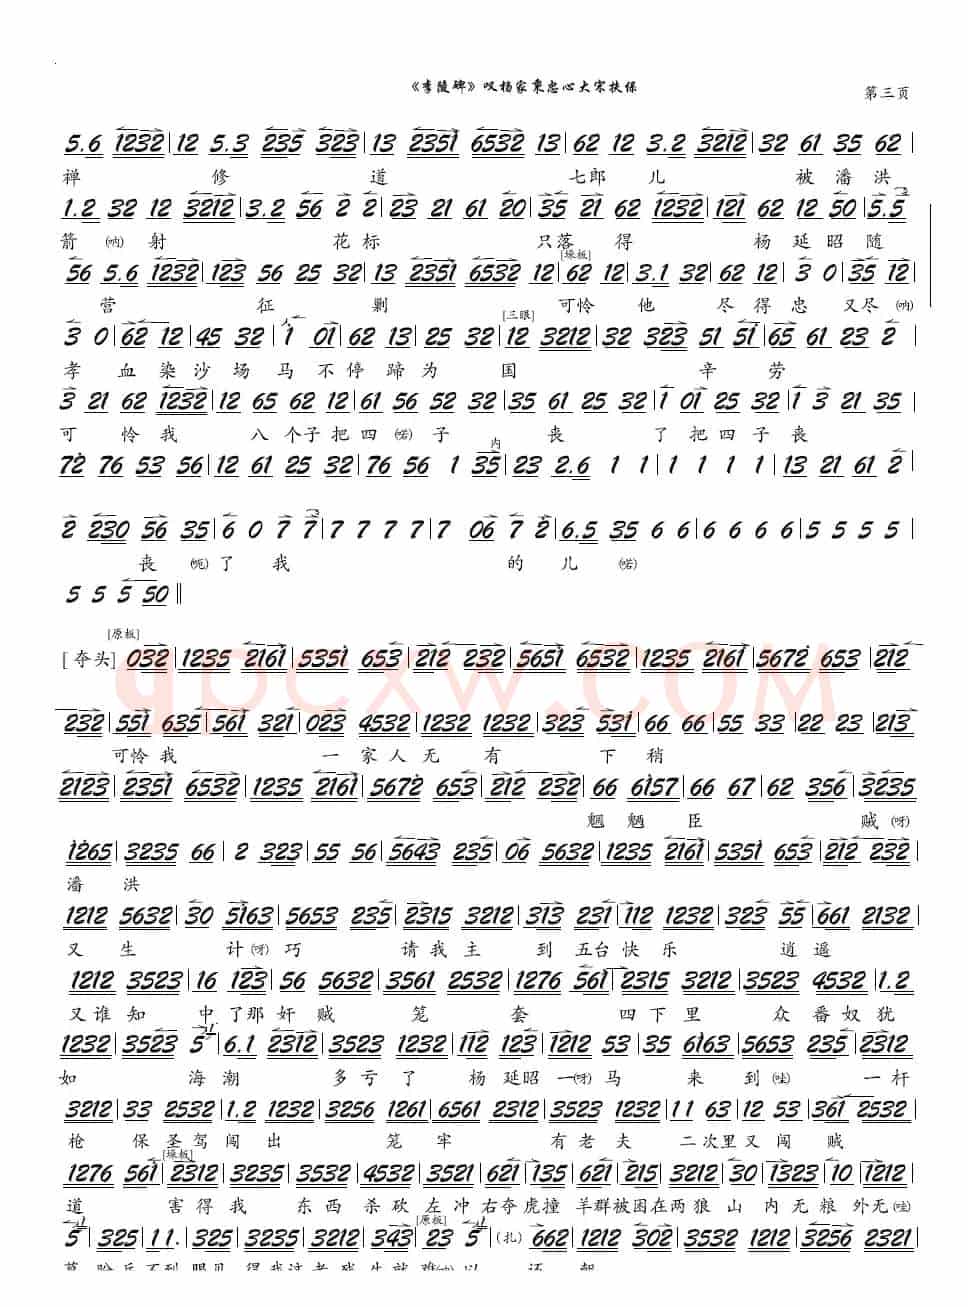 《李陵碑》叹杨家秉忠心大宋扶保
第三页
5.6 1232|12 5.3 235 323|13 2351 6532 13|62 12 3.2 3212|32 61 35 62|
禅 修 道 七郎 儿 被 潘 洪
1.2 32 12 3212|3.2 56 2 2|23 21 61 20|35 21 62 1232|121 62 12 50|5.5
箭 ㈹ 射 花 标 只 落 得 杨 延 昭 随
[垛板]
56 5.6 1232|123 56 25 32|13 2351 6532 12|62 12|3.1 32|62 12|3 0|35 12|
营 征 剿 可怜 他 尽 得 忠 又 尽 (呐)
[三眼]
3 0|62 12|45 32|1 01|62 13|25 32|12 3212 32 323|51 51 65 61|23 2
孝 血 染 沙 场 马 不 停 蹄 为 国 辛 劳
3 21 62 1232|12 65 62 12|61 56 52 32|35 61 25 32|1 01 25 32|1 3 21 35|
可 怜 我 八 个子 把 四 (喏) 子 丧 了 把 四 子 丧
内
72 76 53 56|12 61 25 32|76 56 1 35|23 2.6 1 1|1 1 1 1|13 21 61 2|
2 230 56 35|6 0 7 7|7 7 7 7|7 06 7 2|6.5 35 6 6|6 6 6 6|5 5 5 5|
丧 (呃) 了 我 的 儿 (喏)
5 5 5 50‖
[原板]
[夺头] 032|1235 2161|5351 653|212 232|5651 6532|1235 2161|5672 653|212
qpcxw.COM
232|551 635|561 321|023 4532|1232 1232|323 531|66 66|55 33|22 23|213
可怜 我 一 家 人 无 有 下 稍
2123|2351 6532|1235 2161|5672 653|212 232|66 6157|66 67|62 356|3235
魍 魉 臣 贼 (呀)
1265|3235 66|2 323|55 56|5643 235|06 5632|1235 2161|5351 653|212 232|
潘 洪
1212 5632|30 5163|5653 235|2315 3212|313 231|112 1232|323 55|661 2132|
又 生 计 (呀) 巧 请 我 主 到 五台 快 乐 逍 遥
1212 3523|16 123|56 5632|3561 2532|1276 561|2315 3212|3523 4532|1.2
又 谁 知 中 了 那 奸 贼 笼 套 四 下 里 众 番 奴 犹
1232|3523 5|6.1 2312|3523 1232|112 123|1212 53|35 6163|5653 235|2312
如 海 潮 多 亏 了 杨 延昭 一 (呀) 马 来 到 (哇) 一 杆
3212|33 2532|1.2 1232|3256 1261|6561 2312|3523 1232|11 63|12 53|361 2532|
枪 保 圣 驾 闯 出 笼 牢 有 老 夫 二次里 又 闯 贼
[垛板]
1276 561|2312|3235|3532|4532|3521|621|135|621|215|3212|30|1323|10|1212|
道 害 得 我 东 西 杀 砍 左 冲 右夺虎撞 羊群被困在两狼 山 内 无 粮 外无 (哇)
[原板]
5|325|11.|325|3235|2312|3212|343|23 5|(扎) 662|1212|3212|3235|1212|3256|2321|